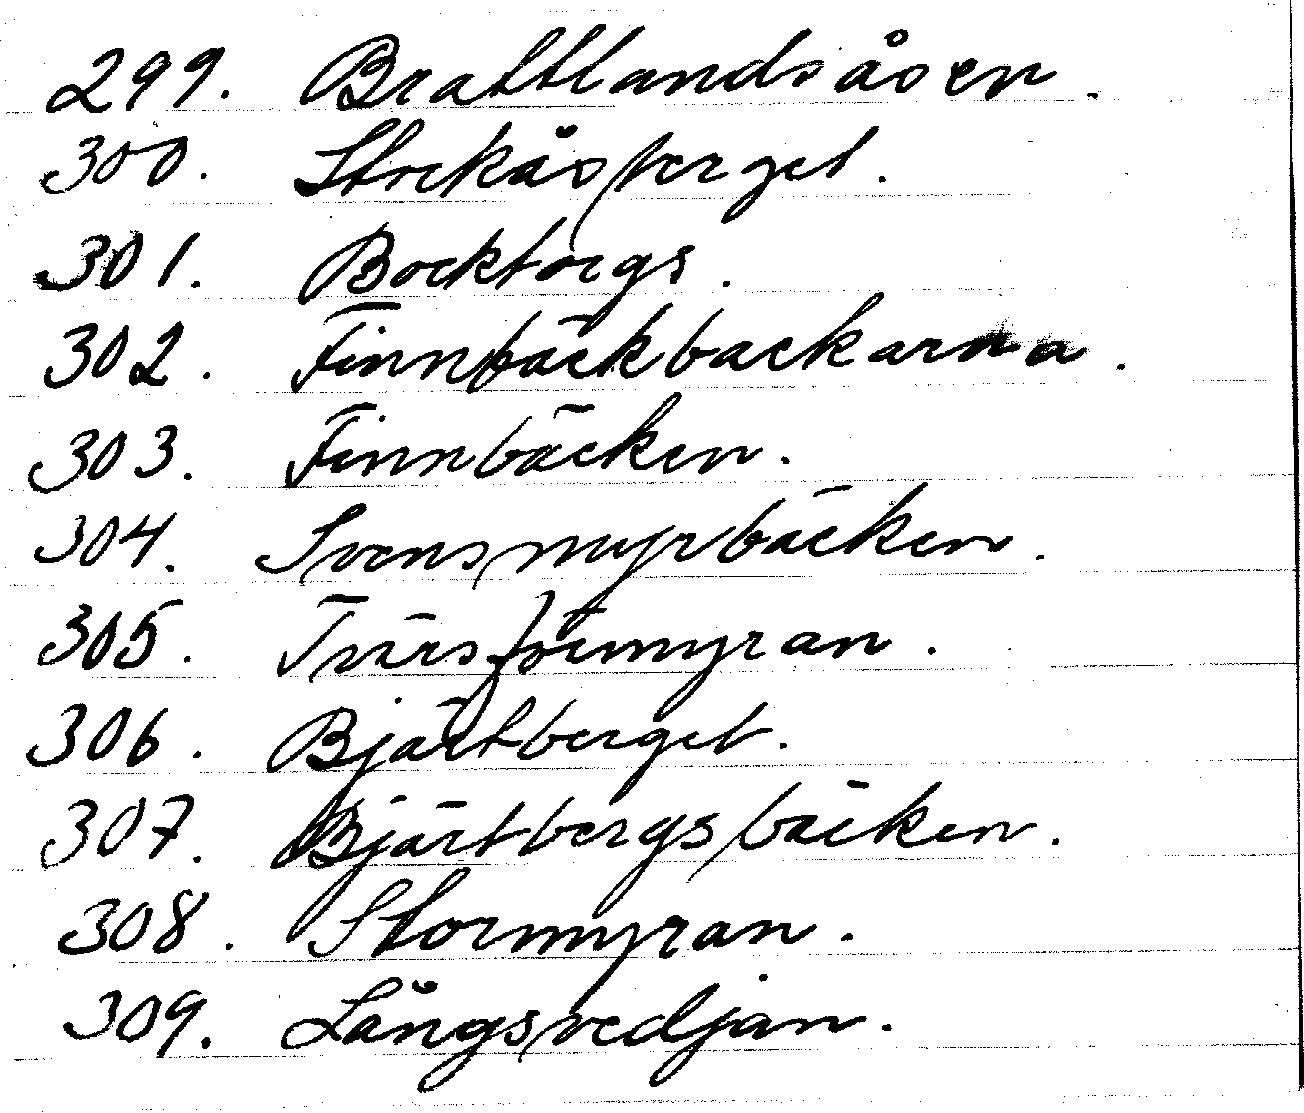 299. Brattlandsåsen.
300. Stockåsberget.
301. Bocktorgs.
302. Finnbäckbackarna.
303. Finnbäcken.
304. Svensmyrbäcken.
305. Tvärsförmyran.
306. Bjärtberget.
307. Bjärtbergsbäcken.
308. Stormyran.
309. Långsvedjan.